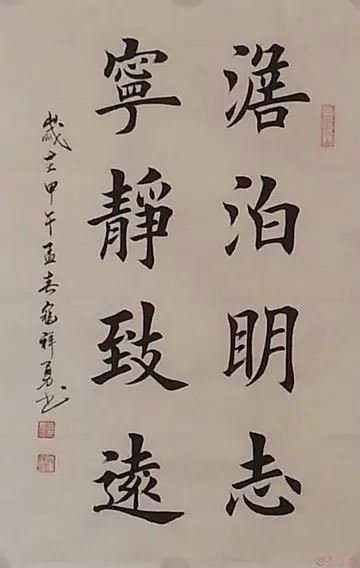 澹泊明志
寧靜致遠
歲在甲午孟春寇祥勇书